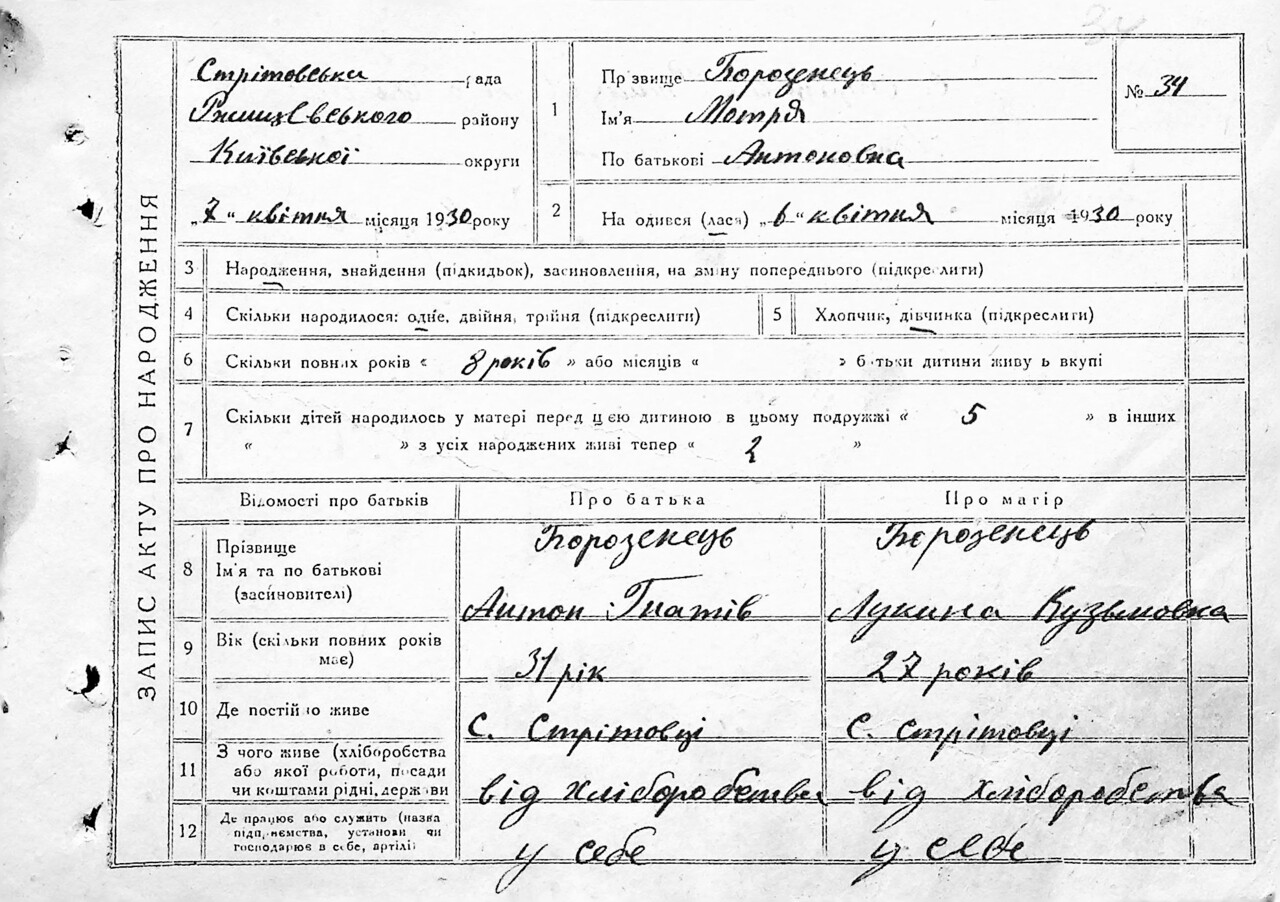 ЗАПИС АКТУ ПРО НАРОДЖЕННЯ
Стрітовська рада
Ржищевського району
Київської округи
„7“ квітня місяця 1930 року
1
Прізвище Борозенець
Ім'я Мотря
По батькові Антоновка
№ 34
2
Народився (лася) „6“ квітня місяця 1930 року
3 Народження, знайдення (підкидьок), засиновлення, на зміну попереднього (підкреслити)
4 Скільки народилося: одне, двійня, трійня (підкреслити)
5 Хлопчик, дівчинка (підкреслити)
6 Скільки повних років « 8 років » або місяців « » батьки дитини живуть вкупі
7 Скільки дітей народилось у матері перед цією дитиною в цьому подружжі « 5 » в інших
« » з усіх народжених живі тепер « 2 »
Відомості про батьків Про батька Про матір
8 Прізвище
Ім'я та по батькові
(засиновителі)
Борозенець
Антон Гнатів
Борозенець
Лукина Кузьмовка
9 Вік (скільки повних років
має)
31 рік
27 років
10 Де постійно живе
С. Стрітовці
С. Стрітовці
11 З чого живе (хліборобства
або якої роботи, посади
чи коштами рідні, держави
від Хліборобства
від Хліборобства
12 Де працює або служить (назва
підприємства, установи чи
господарює в себе, артілі)
у себе
у себе